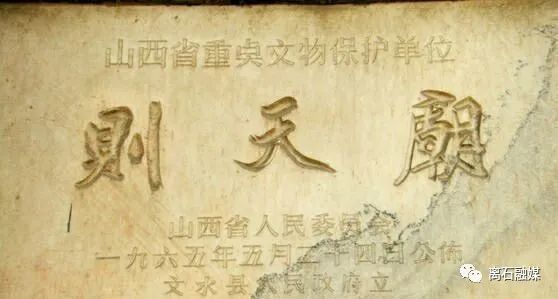 山西省重点文物保护单位
則天廟
山西省人民委员会
一九六五年五月二十四日公佈
文水县人民政府立
离石融媒